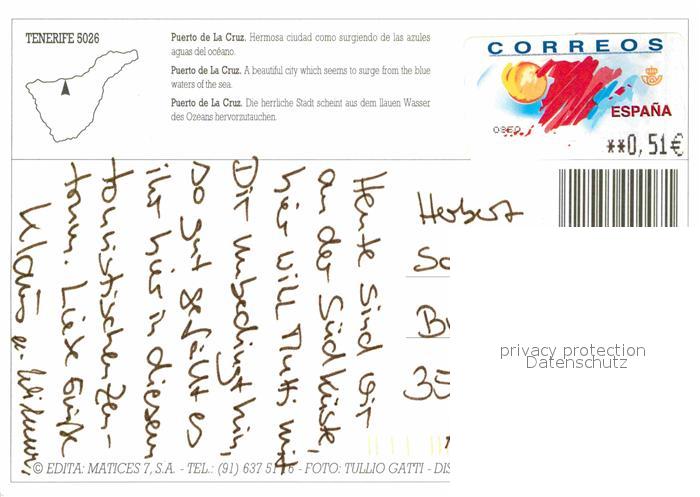 TENERIFE 5026
Puerto de La Cruz. Hermosa ciudad como surgiendo de las azules
aguas del océano.
Puerto de La Cruz. A beautiful city which seems to surge from the blue
waters of the sea.
Puerto de La Cruz. Die herrliche Stadt scheint aus dem llauen Wasser
des Ozeans hervorzutauchen.
CORREOS
ESPAÑA
**0,51€
Heute sind wir
an der Südküste,
hier will Mutti mit
Dir unbedingt hin,
so gut gefällt es
ihr hier in diesem
touristischen Zen-
trum. Liebe Grüße
Klaus u.
Herbert
Sc
B
35
privacy protection
Datenschutz
© EDITA: MATICES 7, S.A. - TEL.: (91) 637 51 6 - FOTO: TULLIO GATTI - DIS